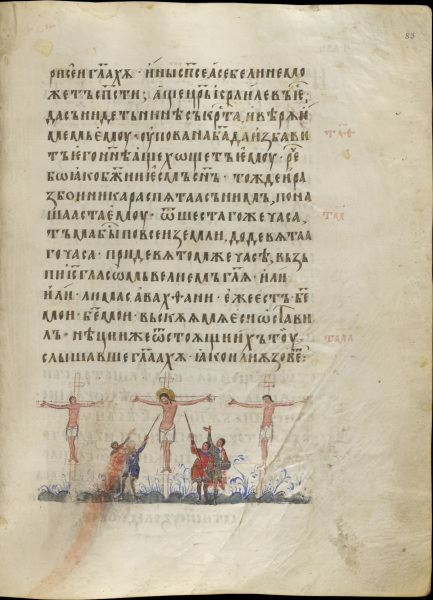 рисеи гл҃аахѫ · ины сп҃се а себе ли не мо
жетъ сп҃сти; аще цр҃ь ісраилевъ е҃,
да сънидетъ нн҃ѣ съ крⷭ҇та, и вѣрѫ и
мемь емоу · упова на ба҃ да избави
тъ его нн҃ѣ аще хощетъ емоу · ре҃
бо ꙗко бж҃ии есмъ сн҃ъ · тожде и ра
збоиника распѧтаа съ нимъ, пона
шааста емоу · ѿ шестаго же часа,
тъма бы҃ по всеи земли, до девѧтаа
го часа · при девѧтѡмже часѣ, възъ
пи іс҃ гласѡмъ велиемъ гл҃ѧ · или
или · лима савахѳани · еже естъ бе҃
мои · бе҃ мои · въскѫѧ мѧ еси ѡстави
лъ · нѣции же ѿ стоѧщиихъ тоу ·
слышавше гл҃аахѫ · ꙗко илиѫ зове҃: